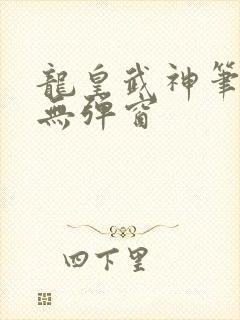 龍皇武神筆
無彈窗
四下里